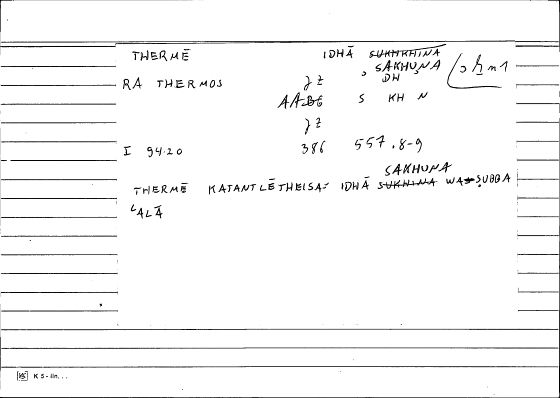 THERMĒ IDHĀ SUKHKHINA
SAKHUNA
RA THERMOS DH
S KH N
I 94.20 386 557.8-9
SAKHUNA
THERMĒ KATANTLĒTHEISA- IDHĀ SUKHINA WA ṢUBBA
ʿALĀ
K S - lin...